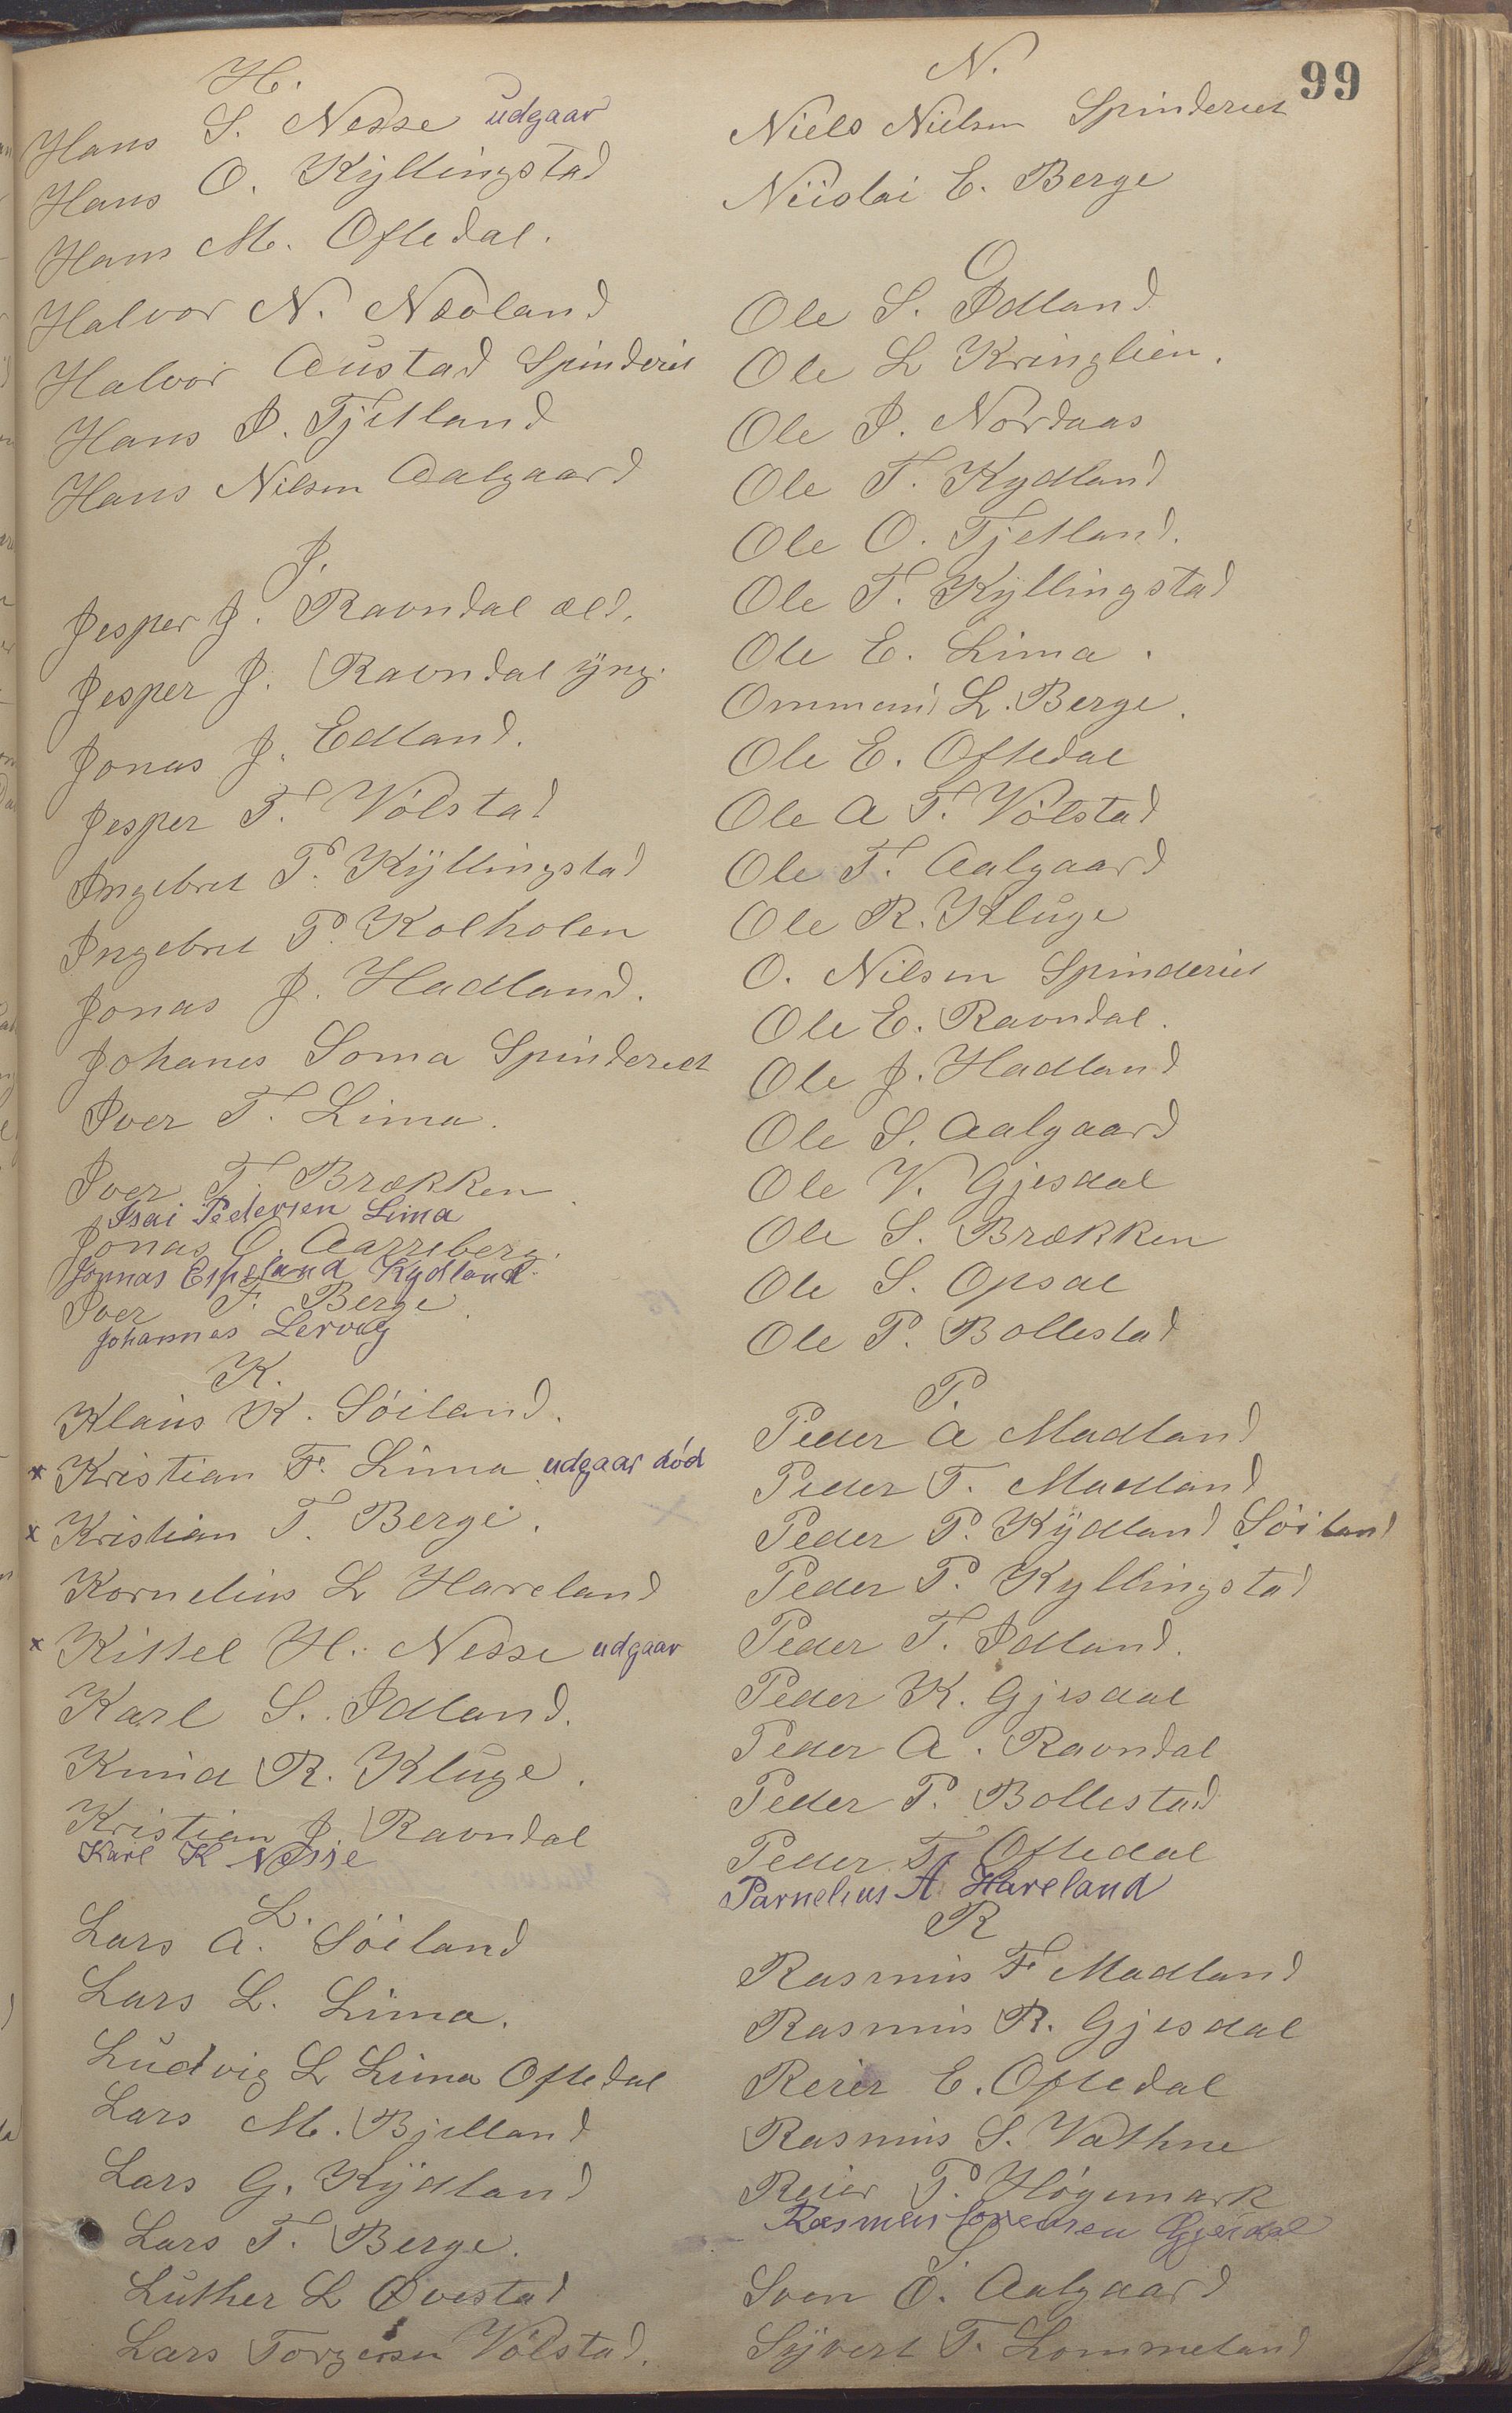 99
H.
Hans S. Nesse udgaar
Hans O. Kyllingstad
Hans M. Oftedal.
Halvor N. Næoland
Halvor Austad Spinderiet
Hans I. Tjetland
Hans Nilsen Aalgaard
J.
Jesper J. Ravndal æld.
Jesper J. Ravndal yng.
Jonas J. Edland.
Jesper T. Volstad
Ingebret P. Kyllingstad
Ingebret P. Kolholen
Jonas J. Hadland.
Johanes Soma Spinderiet
Iver T. Lima.
Iver T. Brækken
Isai Pedersen Lima
Jonas O. Aarreberg.
Jonnas Espeland Kydland.
Iver F. Berge.
Johannes Lervig
K.
Klaus K. Söiland.
x Kristian F. Lima udgaar död
x Kristian T. Berge.
Kornelius L Hareland
x Kittel H. Nesse udgaar
Karl S. Idland.
Knud R. Kluge.
Kristian J. Ravndal
Karl K Nesse
L.
Lars A. Söiland
Lars L. Lima.
Ludvig L Lima Oftedal
Lars M. Bjelland
Lars G. Kydland
Lars T. Berge.
Luther L Övestad
Lars Torgersen Volstad.
N.
Niels Nielsen Spinderiet
Nicolai E. Berge
O
Ole S. Idland
Ole L Kringlien.
Ole I. Nordaas
Ole T. Kydland
Ole O. Tjetland.
Ole T. Kyllingstad
Ole E. Lima.
Ommund L. Berge.
Ole E. Oftedal
Ole A T. Volstad
Ole T. Aalgaard
Ole R. Kluge
O. Nilsen Spinderiet
Ole E. Ravndal.
Ole J. Hadland
Ole S. Aalgaard
Ole V. Gjesdal
Ole S. Brækken
Ole S. Opsal
Ole P. Bollestad
P.
Peder A Madland
Peder T. Madland
Peder P. Kydland Söiland
Peder P. Kyllingstad
Peder T. Idland.
Peder K. Gjesdal
Peder A. Ravndal
Peder P. Bollestad
Peder T. Oftedal
Parnelius A Hareland
R
Rasmus F. Madland
Rasmus R. Gjesdal
Reier E. Oftedal
Rasmus S. Vathne
Reier P. Högemark
Rasmus Sorensen Gjesdal
S.
Sven O. Aalgaard
Syvert T. Lommeland